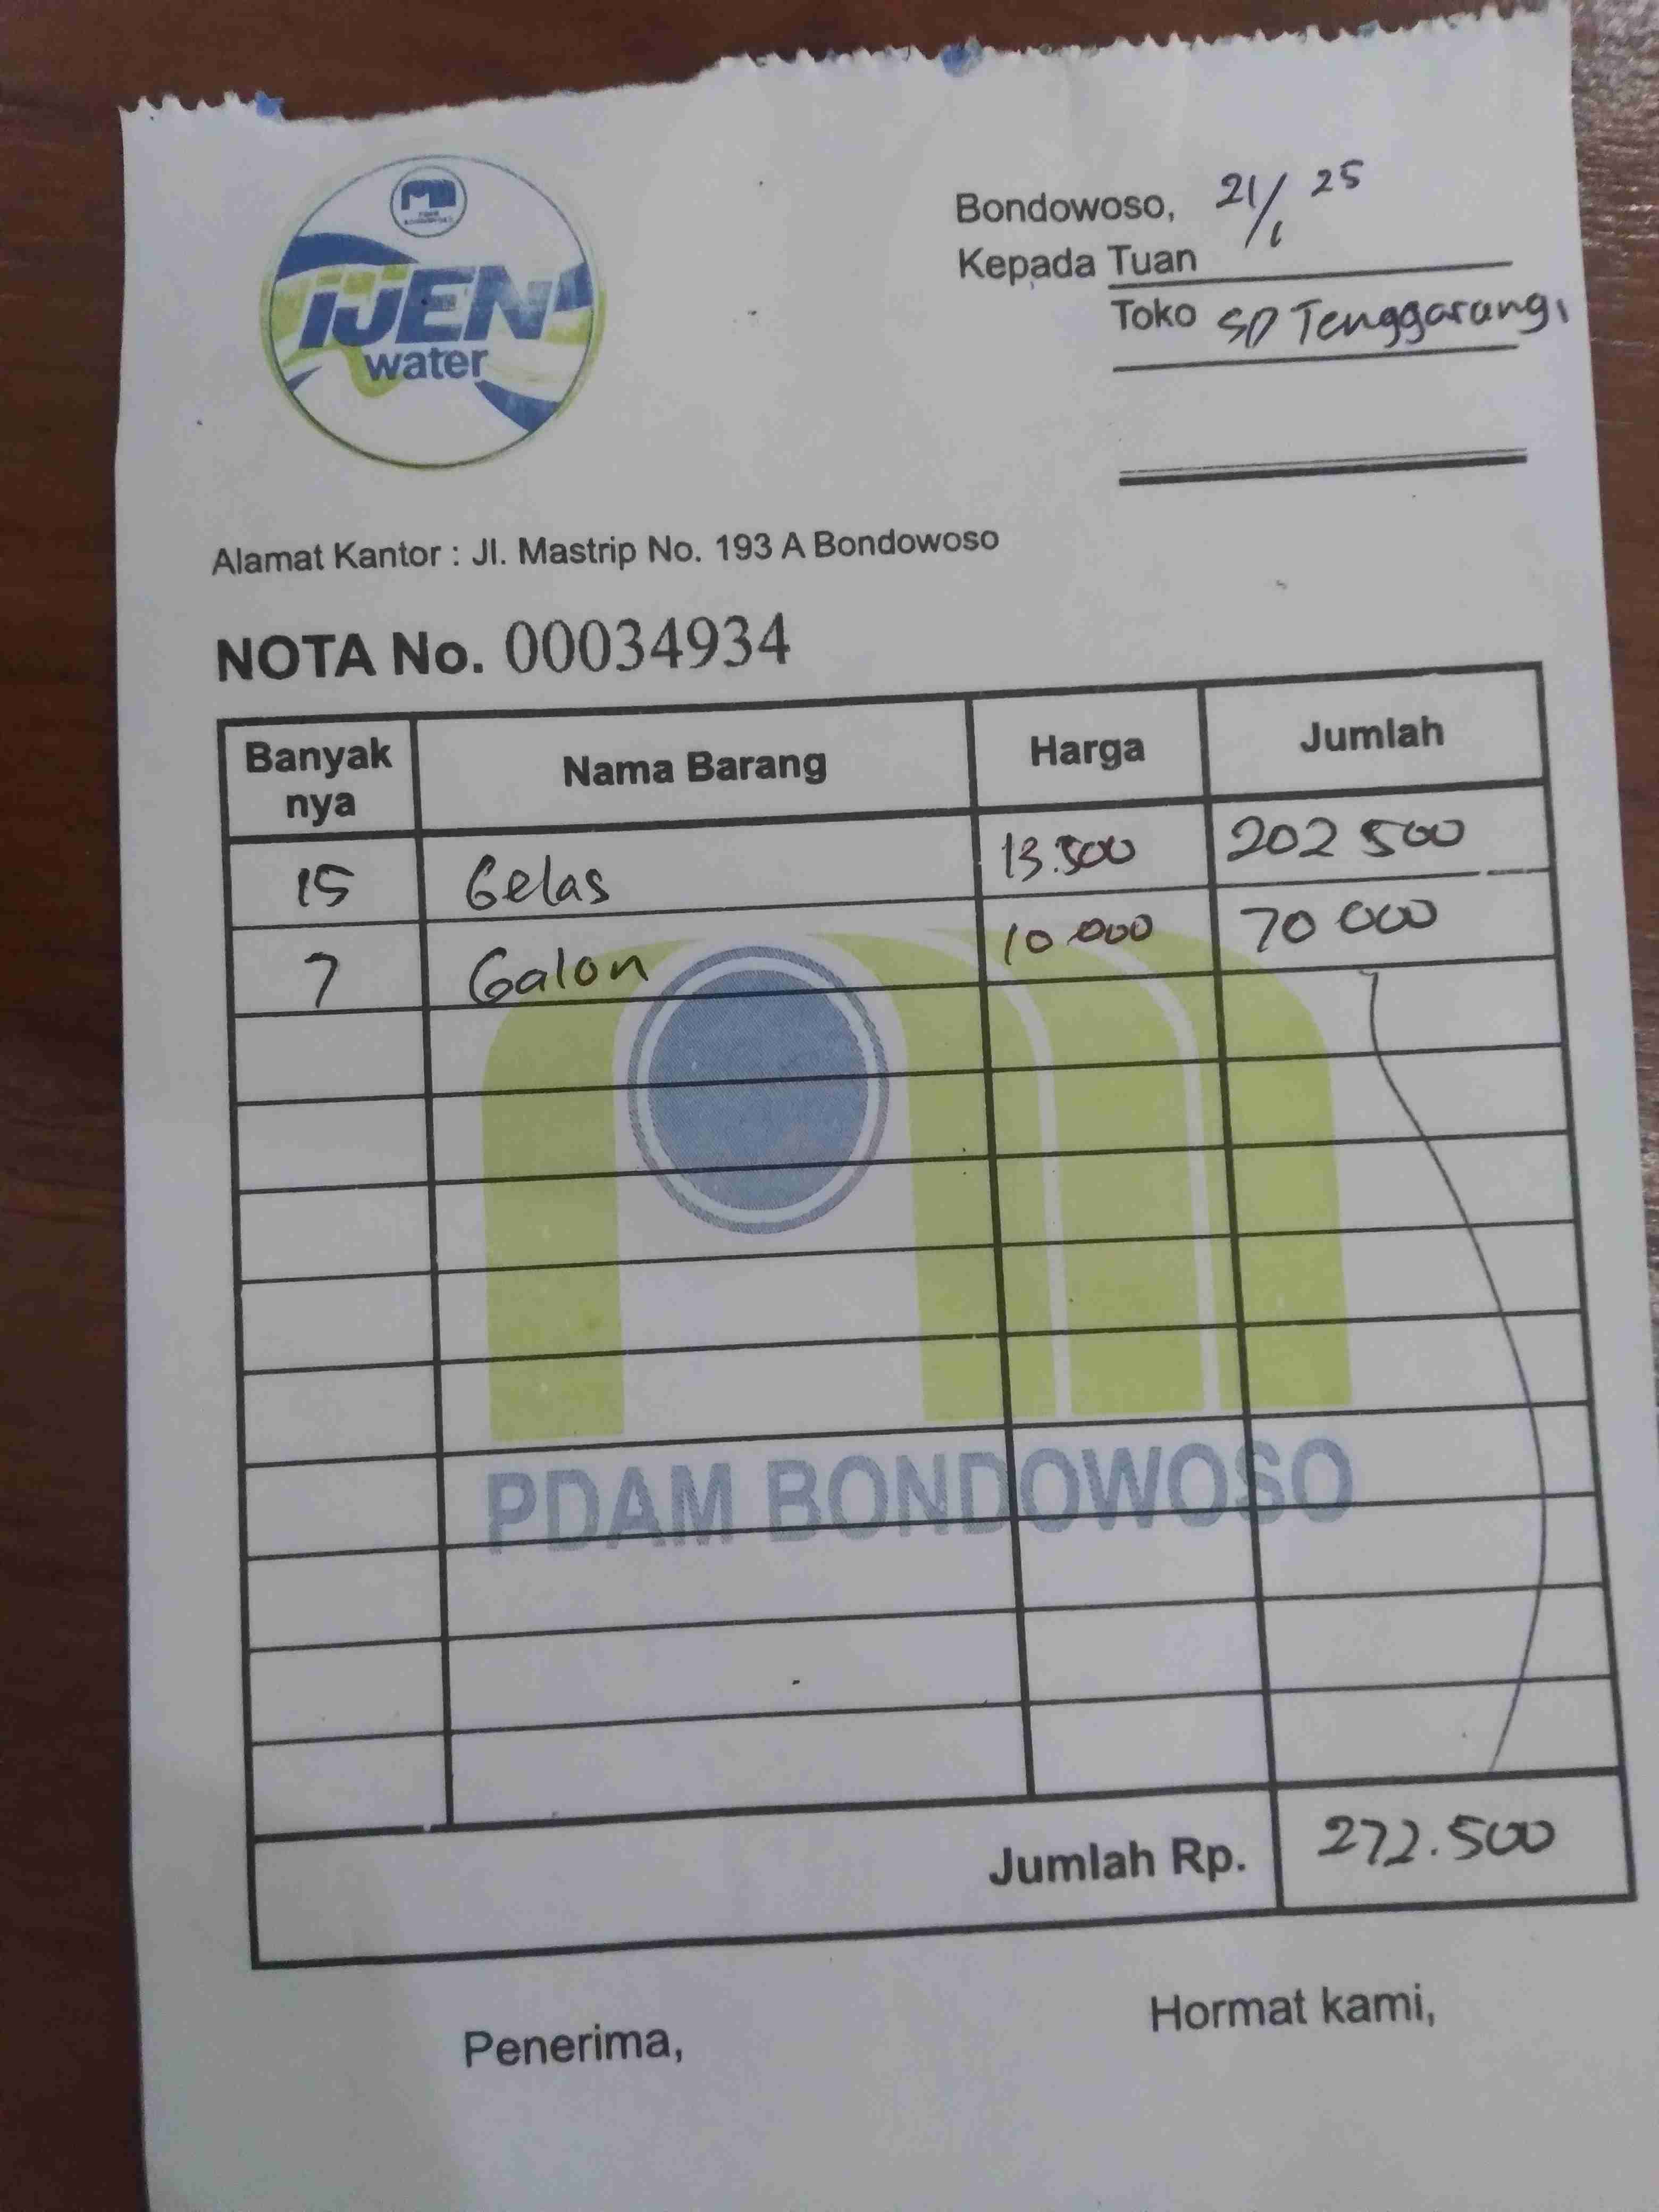 IJEN
water
Bondowoso, 21/1 25
Kepada Tuan
Toko SP Tenggarang
Alamat Kantor : Jl. Mastrip No. 193 A Bondowoso
NOTA No. 00034934
Banyak nya Nama Barang Harga Jumlah
15 Gelas 13.500 202 500
7 Galon 10 000 70 000
PDAM BONDOWOSO
Jumlah Rp. 272.500
Penerima, Hormat kami,